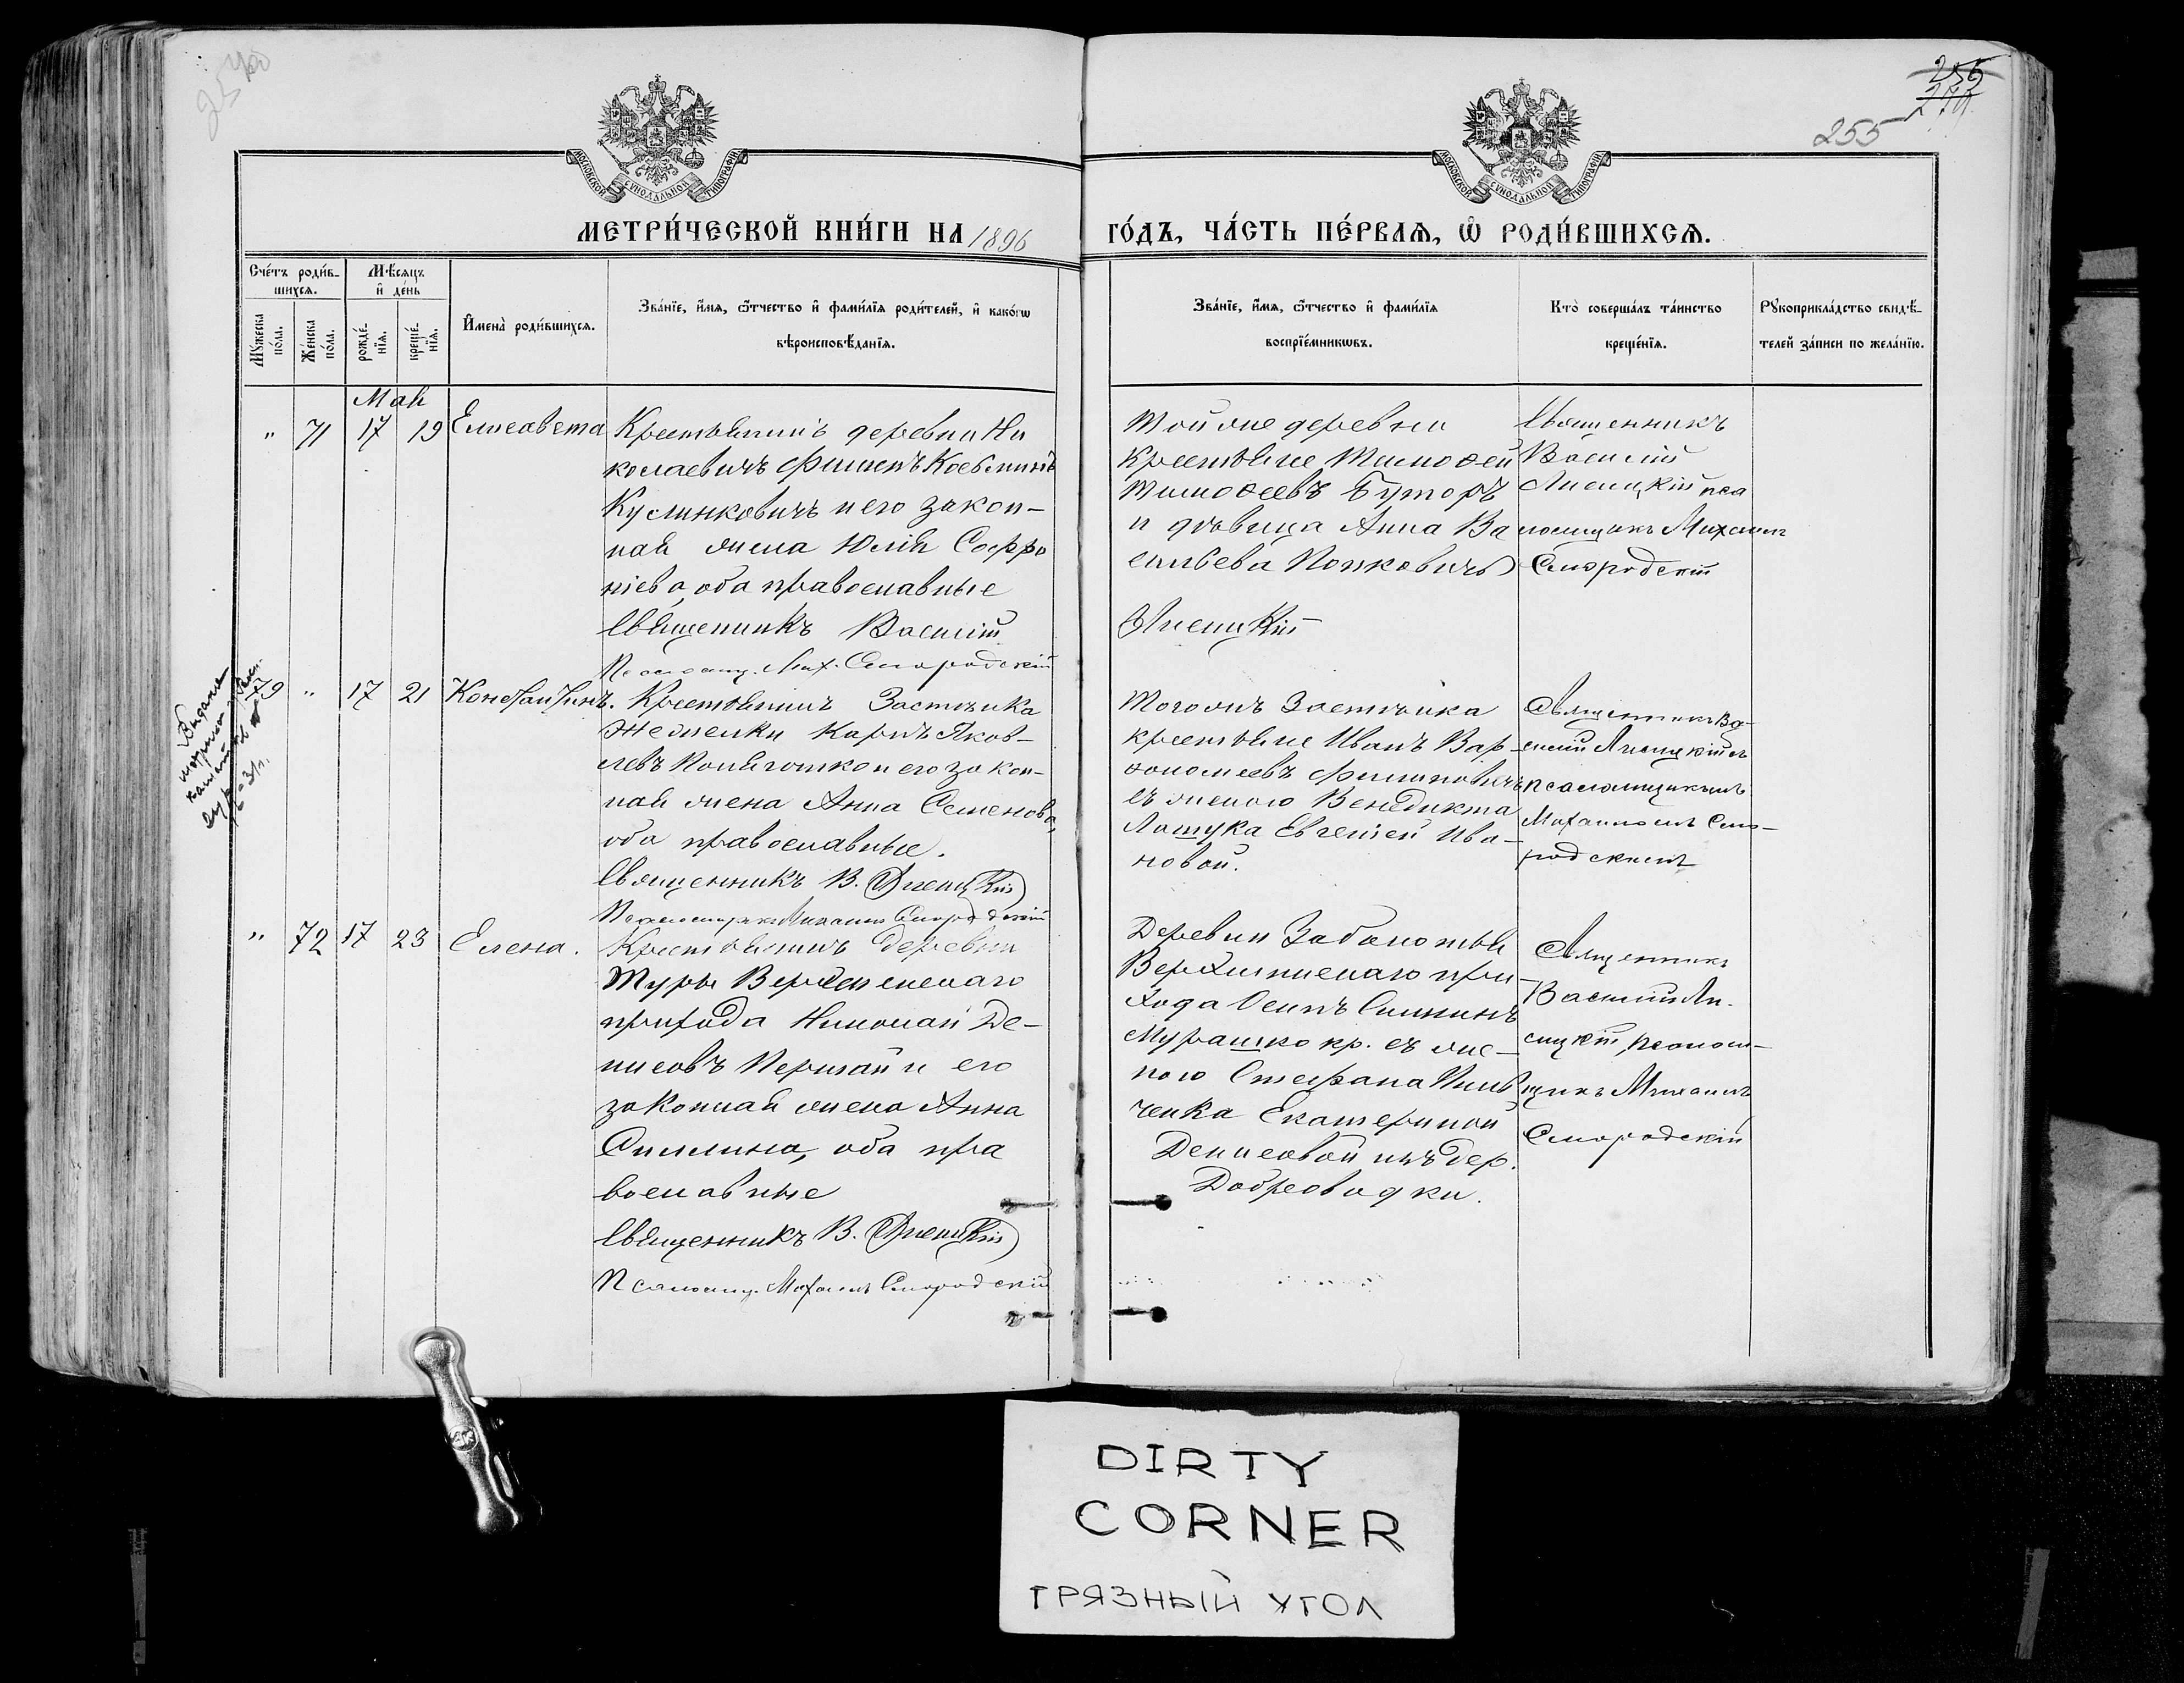 255
255
МОСКОВСКОЙ СУНОДАЛЬНОЙ ТИПОГРАФІИ
МОСКОВСКОЙ СУНОДАЛЬНОЙ ТИПОГРАФІИ
МЕТРИ́ЧЕСКОЙ КНИ́ГИ НА 1896
ГО́ДЪ, ЧА́СТЬ ПЕ́РВАѦ, Ѡ҆ РОДИ́ВШИХСѦ.
Сче́тъ роди́в-
шихсѧ.
Мꙋ́жеска по́ла.
Же́нска по́ла.
Мѣ́сѧцъ
и҆ де́нь
рожде́-
нїѧ.
креще́-
нїѧ.
И҆мена̀ роди́вшихсѧ.
Зва́нїе, и҆́мѧ, ѻ҆́тчество и҆ фами́лїѧ роди́телей, и҆ како́гѡ
вѣроисповѣ́данїѧ.
Зва́нїе, и҆́мѧ, ѻ҆́тчество и҆ фами́лїѧ
воспрїе́мникѡвъ.
Кто̀ соверша́лъ та́инство
креще́нїѧ.
Рꙋкоприкла́дство свидѣ́-
телей за́писи по жела́нїю.
Май
" 71 17 19 Елисавета
Крестьянинъ деревни Ни
колаевичъ Филипъ Косьминъ
Куслинковичъ и его закон-
ная жена Юлія Софро
ніева, оба православные
Священникъ Василій
Псаломщ. Мих. Смородскій
Той же деревни
крестьяне Тимоѳей
Тимоѳеевъ Буторъ
и дѣвица Анна Ва
сильева Попковичъ
Лисицкій
Священникъ
Василій
Лисицкій пса
ломщикъ Михаилъ
Смородскій
79 " 17 21 Константинъ.
Крестьянинъ Застѣнка
Карпъ Яков-
левъ и его закон-
ная жена Анна Семенова,
оба православные.
Священникъ В. Лисицкій
Псаломщикъ Михаилъ Смородскій
Тогожъ Застѣнка
крестьяне Иванъ Вар-
ѳоломеевъ Филиповичъ
съ женою Венедикта
Лашука Евгеніей Ива-
новой.
Священникъ Ва-
силій Лисицкій съ
псаломщикомъ
Михаиломъ Смо-
родскимъ
" 72 17 23 Елена.
Крестьянинъ деревни
Туры
прихода Николай Де-
нисовъ и его
законная жена Анна
оба пра
вославные
Священникъ В. Лисицкій
Псаломщ. Михаилъ Смородскій
Деревни Заболотья
при-
хода Осипъ
Мурашко кр. съ же-
ною Стефана
ченка Екатериной
Денисовой изъ дер.
Добреводки.
Священникъ
Василій Ли-
сицкій, псалом-
щикъ Михаилъ
Смородскій
DIRTY
CORNER
ГРЯЗНЫЙ УГОЛ